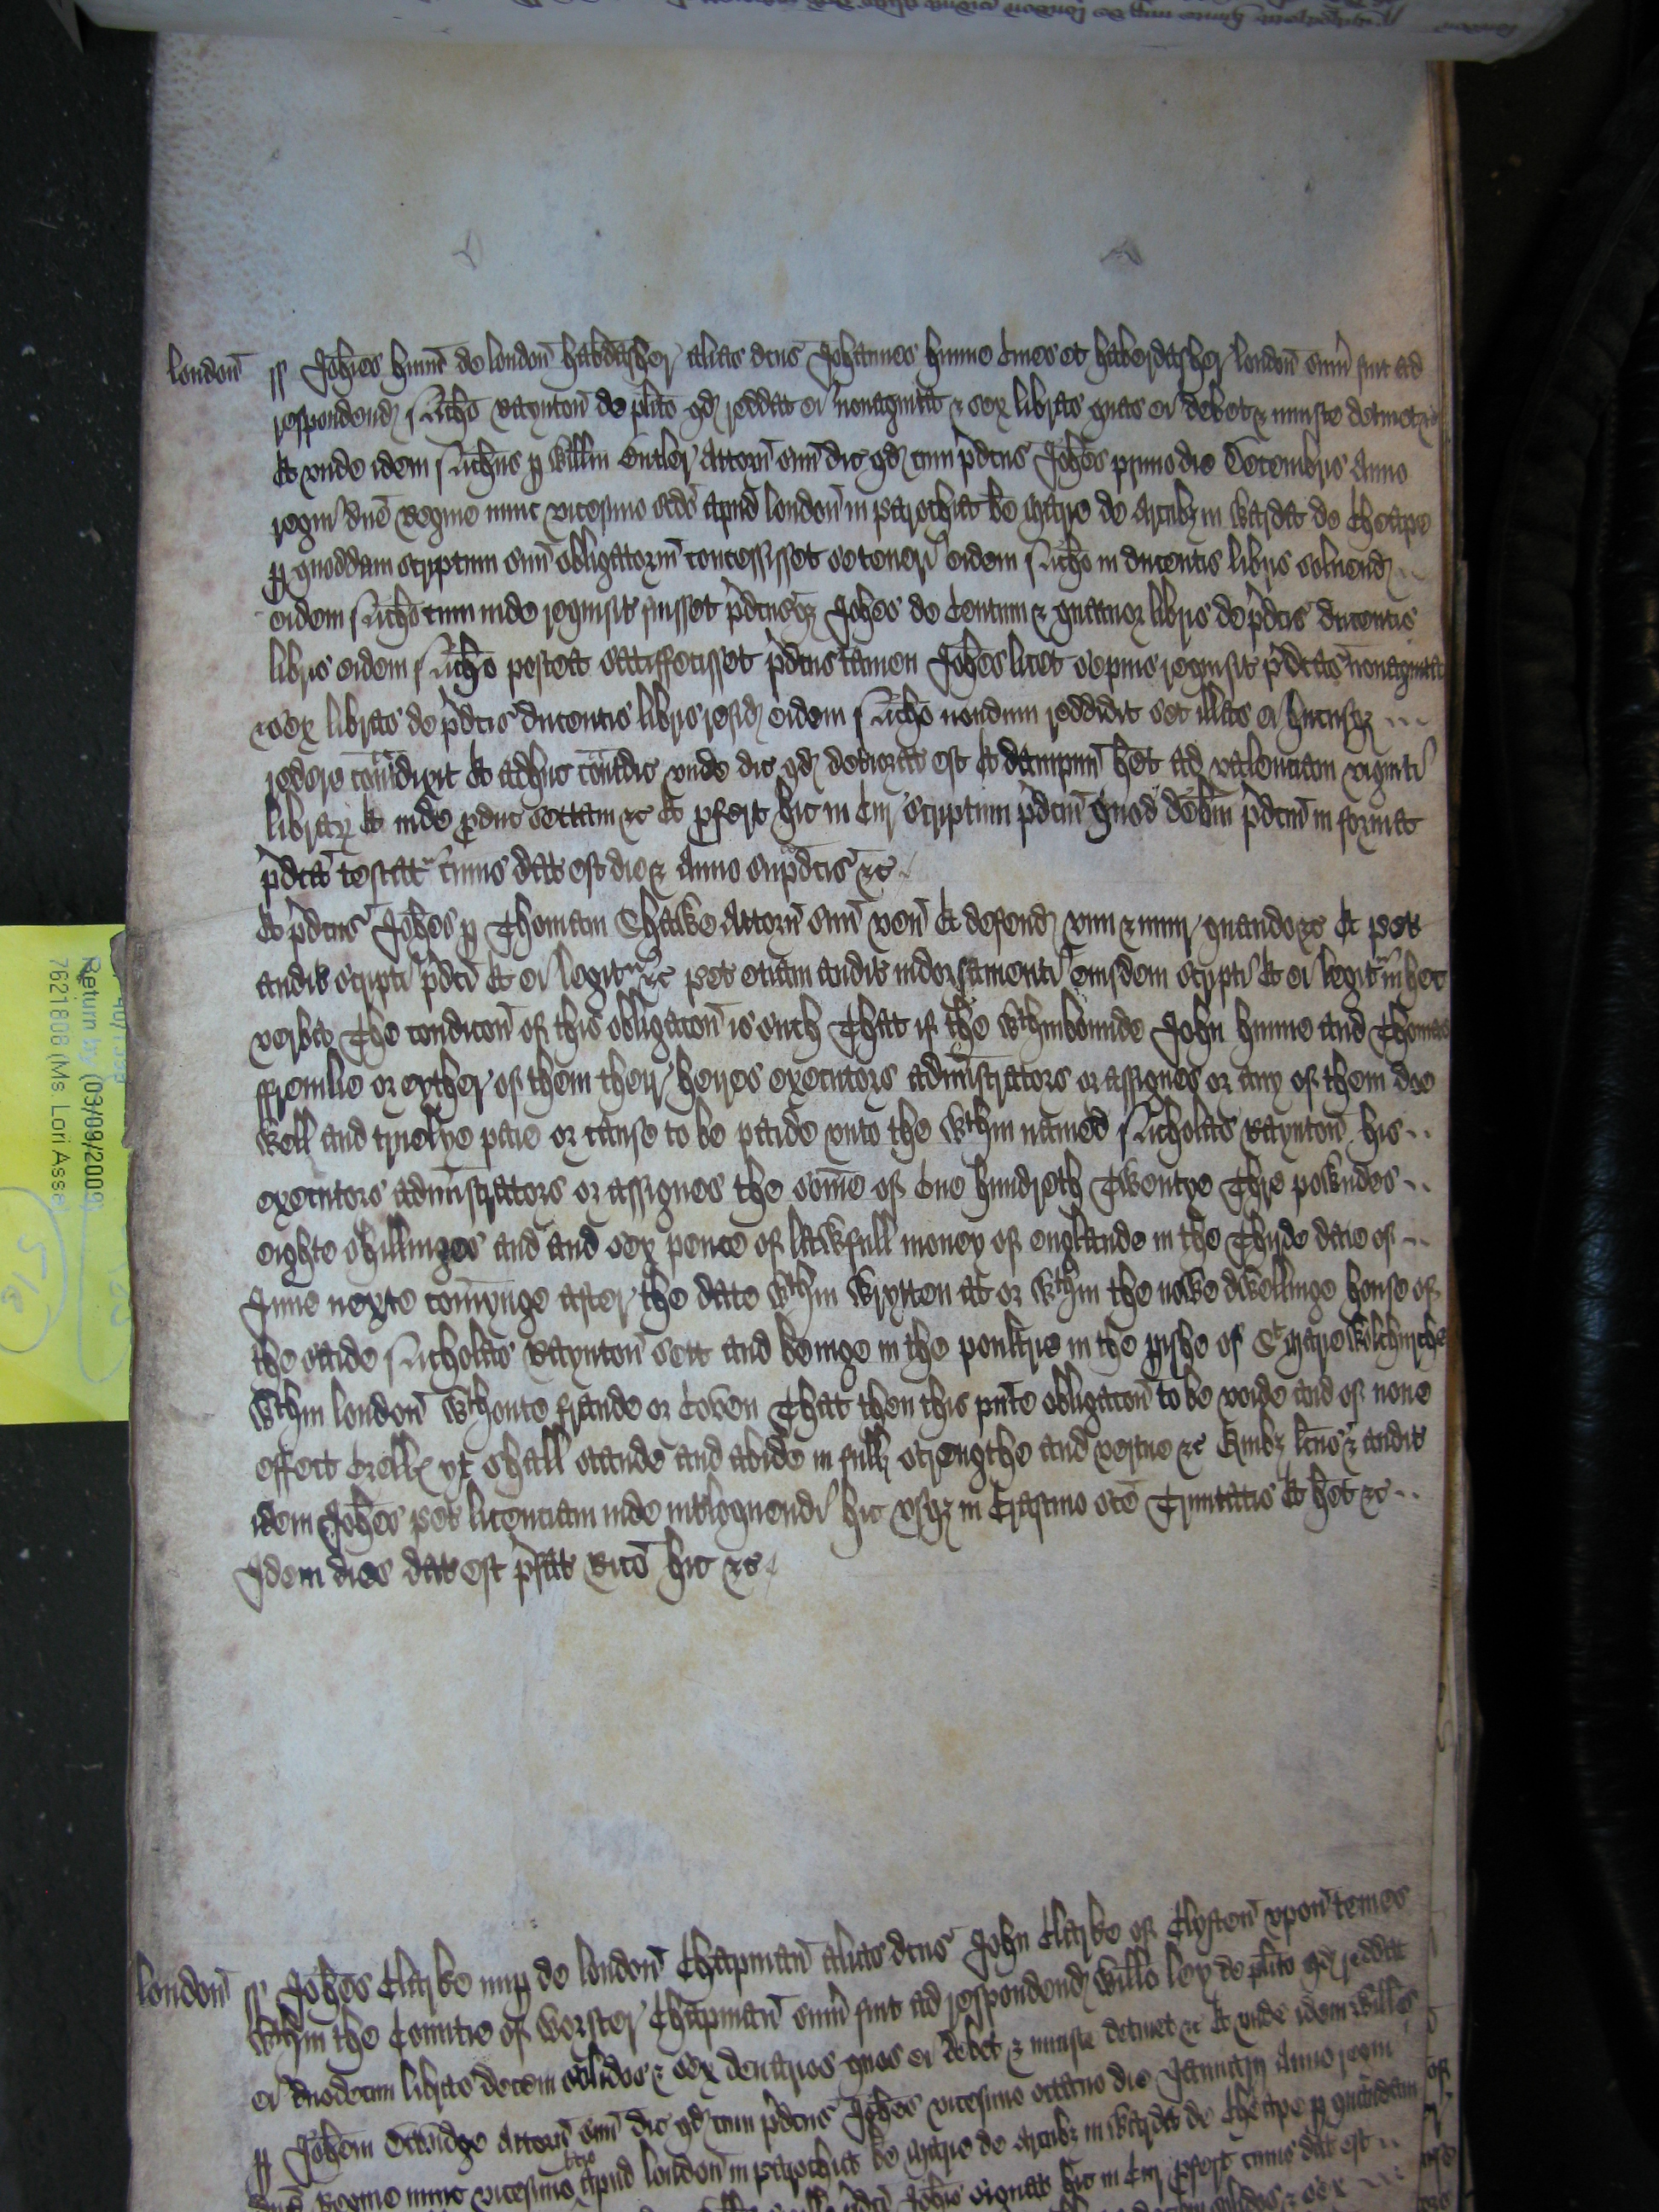 london̄ ss Joh̄es hunn̄e de london̄ hab̄dassher alias dc̄us Johannes hunne Cives et haberdassher london̄ sum̄ fuit ad
respondend Nich̄o Raynton̄ de pl̄ito qd reddat ei nonaginta & sex libras quas ei debet & iniuste detinet &c
Et vnde idem Nich̄us p Will̄m Cutler Attorn̄ suū dic qd cum p̄dc̄us Joh̄es primo die Decembris Anno
regni dn̄e Regine nunc vicesimo sc̄do apud london̄ in parochia b̄e marie de Arcubz in Warda de Cheape
p quoddam scriptum suū obligatoriū concessisset se teneri eidem Nich̄o in ducentis libris solvend
eidem Nich̄o cum inde requisit fuisset p̄dc̄usqz Joh̄es de Centum & quatuor libris de p̄dc̄is ducentis
libris eidem Nich̄o postea satisfecisset p̄dc̄us tamen Joh̄es licet sepius requisit p̄dc̄as nonaginta
& sex libras de p̄dc̄is ducentis libris resid eidem Nich̄o nondum reddidit set illas ei hucusqz
redere cont̄dixit Et adhuc cont̄dic vnde dic qd deteriorat est Et dampnū h̄et ad valenciam viginti
librar Et inde p̄duc sectam &c Et p̄fert hic in Cur scriptum p̄dc̄m quod debit̄m p̄dc̄m in forma
p̄dc̄a testat̄r cuius dat est die & Anno sup̄dc̄is &c
Et p̄dc̄us Joh̄es p Thomam Shawe Attorn̄ suū ven̄ Et defend vim & iniur quando &c Et pet
audit̄ scripti p̄dc̄i Et ei legit̄r &c pet etiam audit̄ indorsamenti eiusdem scripti Et ei legit̄r in hec
verba The condicōn of this obligacōn is such That if the wthinbounde John hunne and Thomas
or eyther of them their heires executors adm̄istrators or assignes or any of them doe
well and truelye paie or cause to be paide vnto the wthin named Nicholas Raynton̄ his
executors adm̄istrators or assignes the som̄e of One hundreth Twentye Thre powndes
eighte shillinges and and sex pence of lawfull money of englande in the Thirde daie of
June nexte com̄ynge after the date wthin wrytten at or wthin the nowe dwellinge house of
the saide Nicholas Raynton̄ sett and beinge in the poultrie in the p̄ishe of St marie Wolchurche
wthin london̄ wthoute fraude or Coven That then this pn̄te obligacōn to be voide and of none
effect Or ells yt shall stande and abide in full strengthe and vertue &c Quibz lc̄is & audit̄
idem Joh̄es pet licenciam inde int̄loquendi hic vsqz in Crastino sc̄e Trinitatis Et h̄et &c
Idem dies dat est p̄fat Nicō hic &c
london̄ ss Joh̄es Clarke nup de london̄ Chapman̄ alias dc̄us John Clarke of Clyfton̄ vpon̄ temes
wthin the Countie of Worster Chapman̄ sum̄ fuit ad respondend Will̄o ley de pl̄ito qd reddat
ei duodecim libras decem solidos & sex denarios quos ei debet & iniuste detinet &c Et vnde idem Will̄s
p Joh̄em Attorn̄ suū dic qd cum p̄dc̄us Joh̄es vicesimo octavo die Januarii Anno regni
dn̄e Regine nunc vicesimo apud london̄ in parochia b̄e marie de Arcubz in Warda de Cheape p quandam
Joh̄is signat̄ hic in Cur p̄fert cuius dat est
Return by (03/09/2009)
7621808 (Ms. Lori Asse